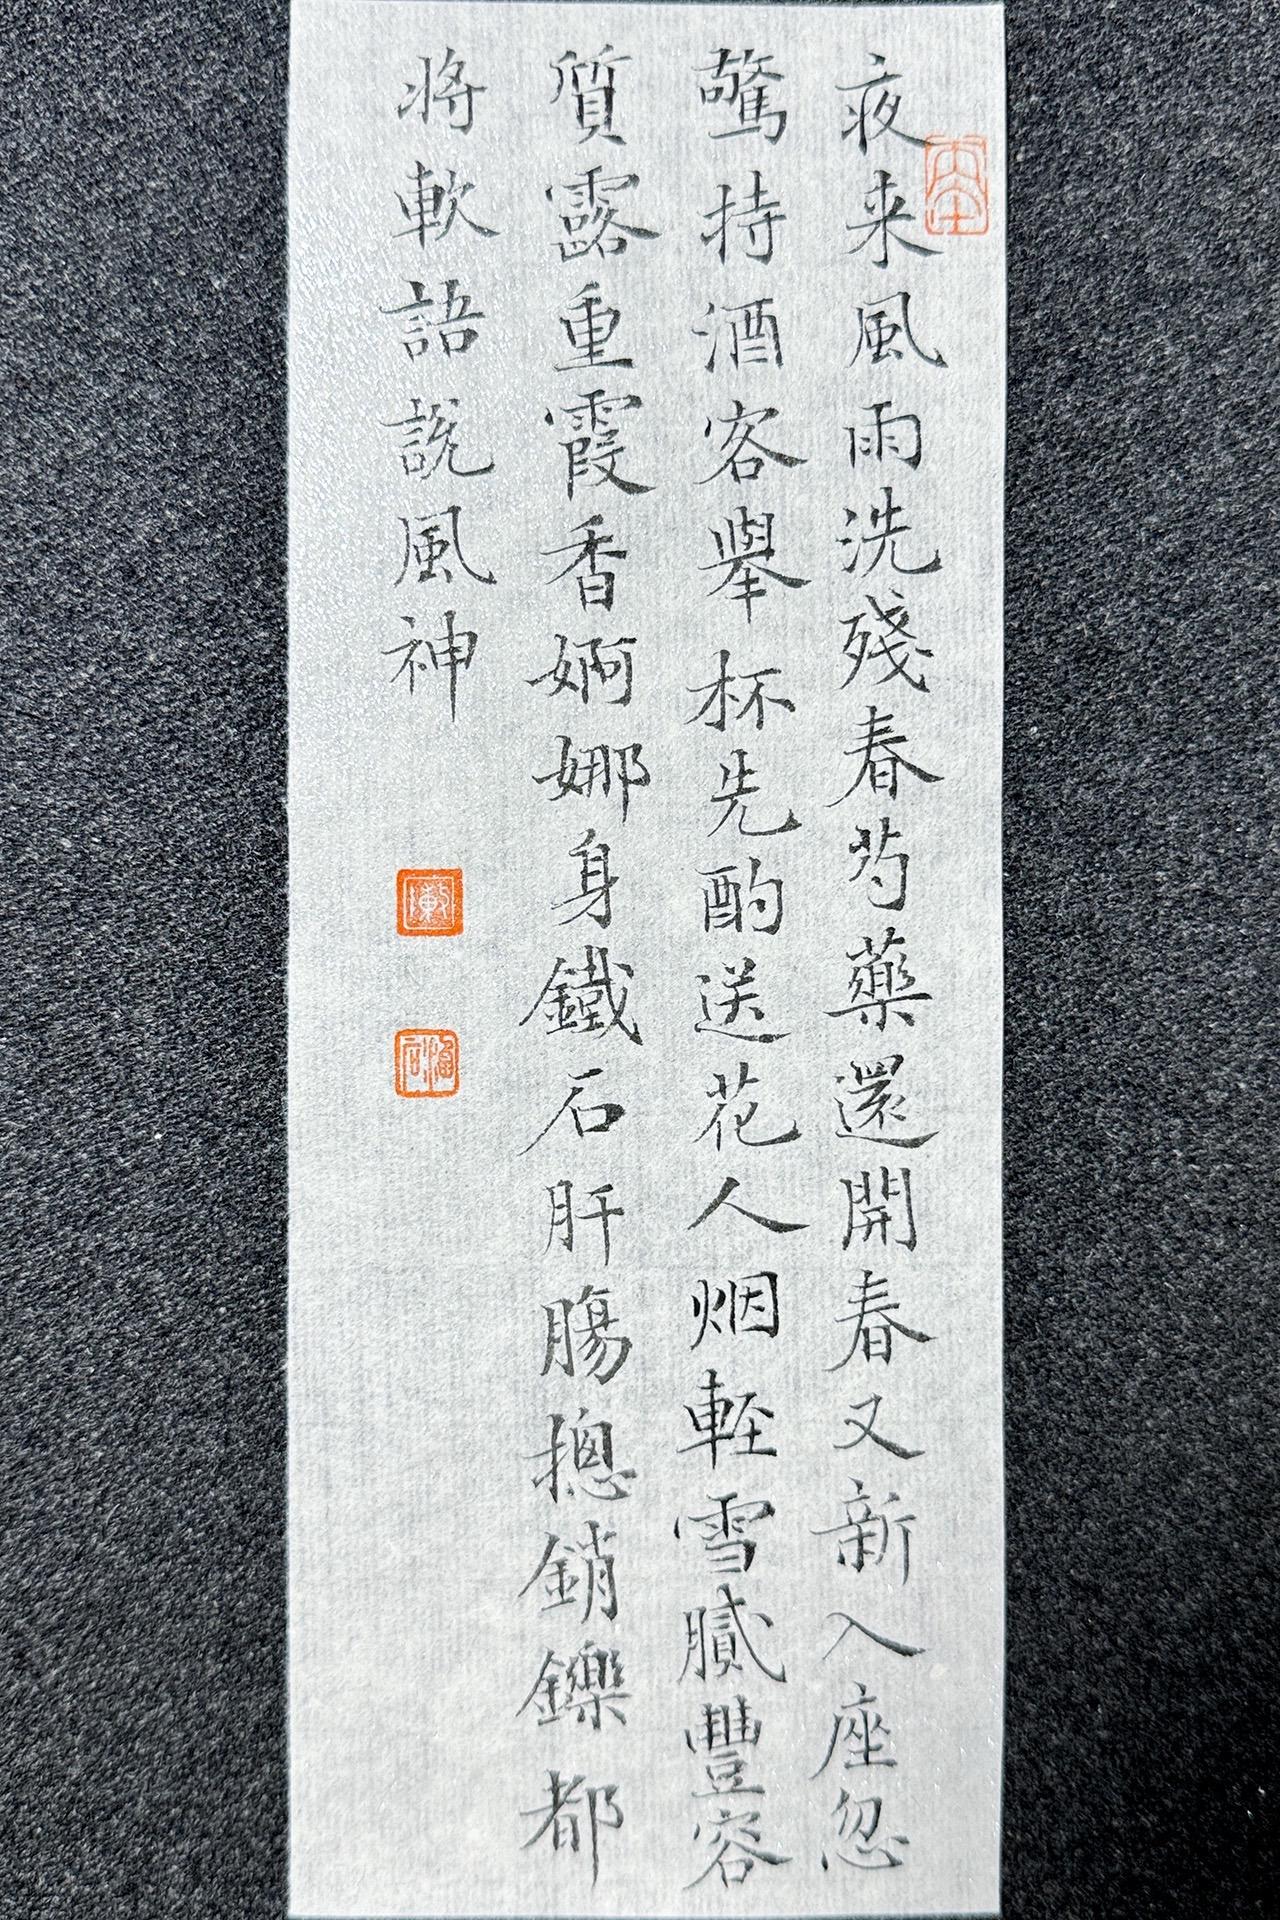 夜来風雨洗殘春芍藥還開春又新入座忽
驚持酒客舉杯先酌送花人烟軽雪膩豐容
質露重霞香婀娜身鐵石肝腸摠銷鑠都
将軟語説風神